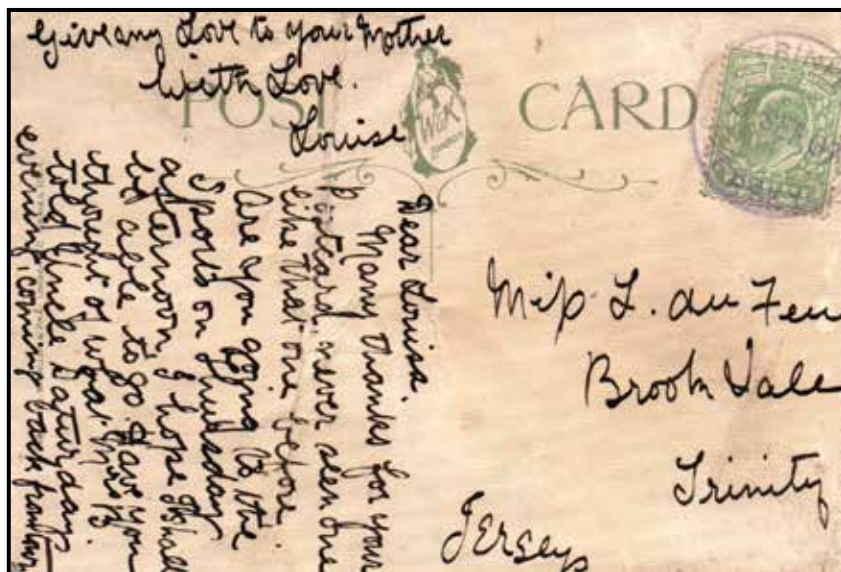 Give any Love to your Mother
With Love.
Louise
POST CARD
W&K
LONDON
Dear Louisa.
Many thanks for your
Postcard, never seen one
like that one before.
Are you going to the
Sports on Thursday
afternoon, I hope I shall
be able to go. Have you
thought of what Miss B
told Uncle Saturday
evening, coming back from town
Miss L. du Feu
Brook Vale
Trinity
Jersey